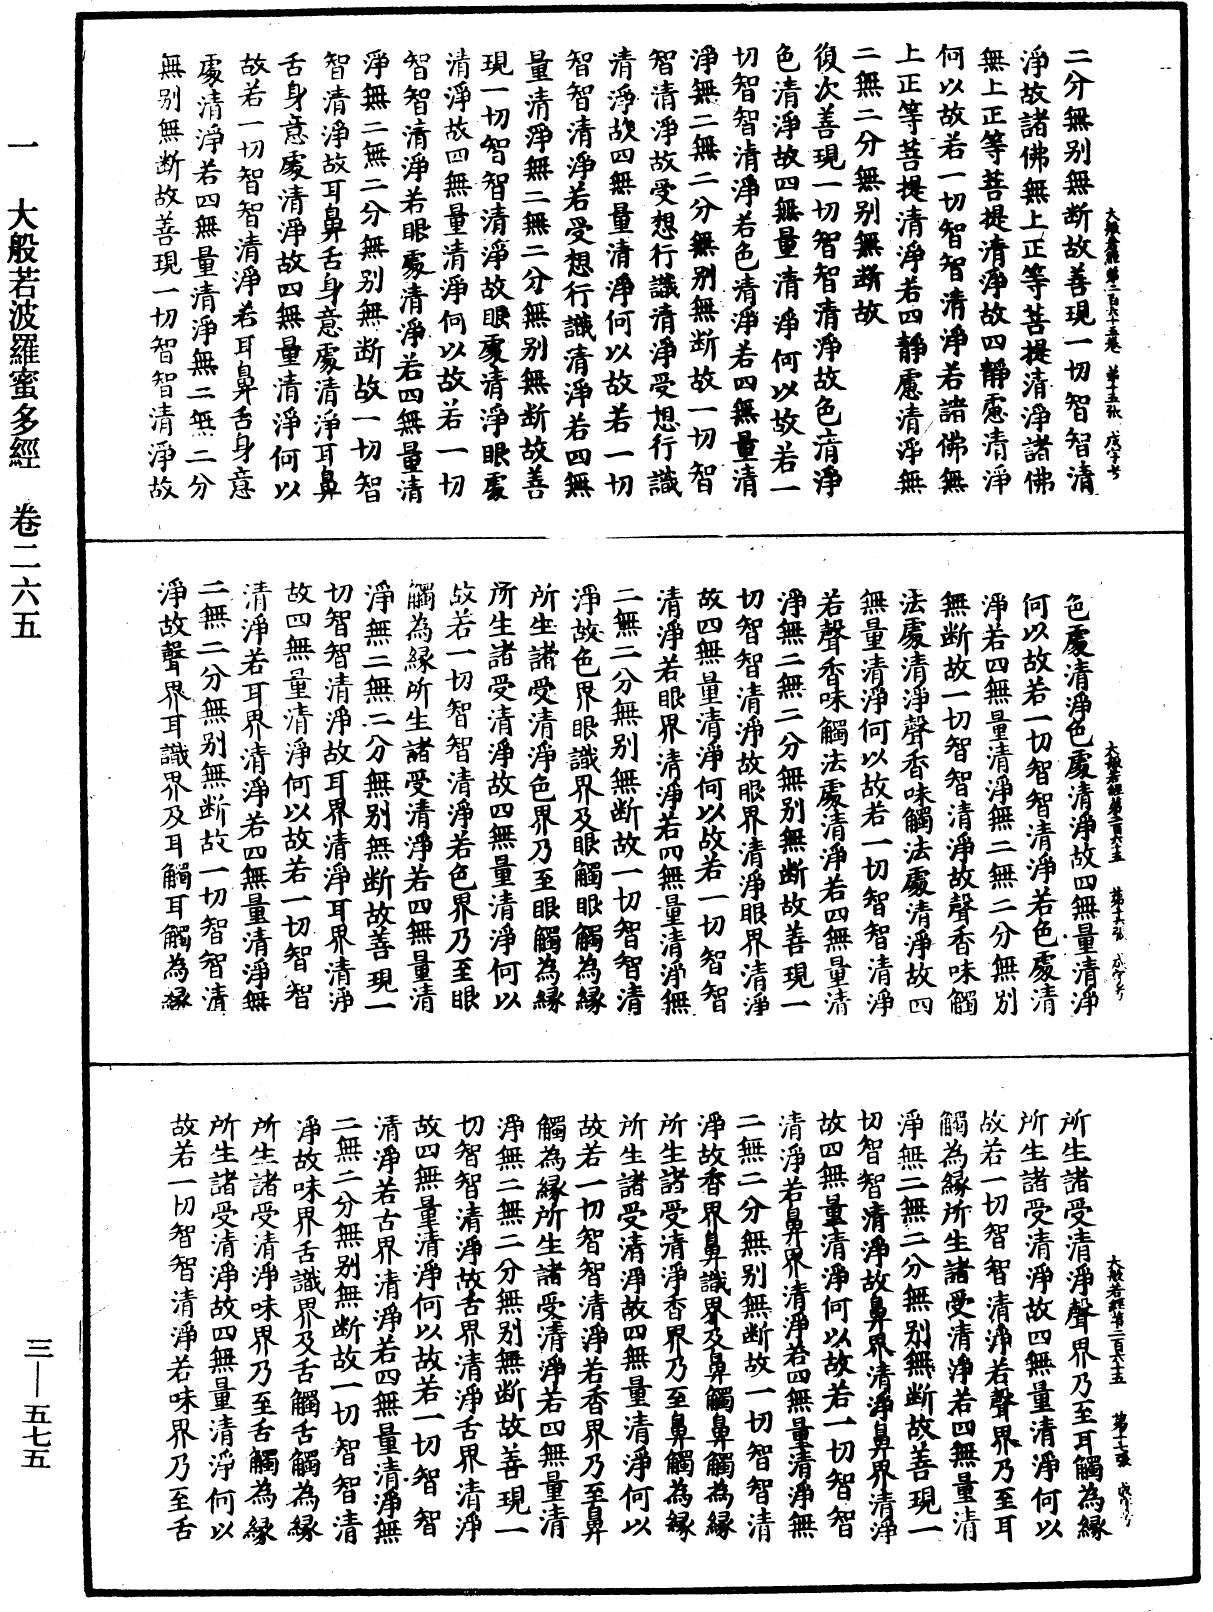 一 大般若波羅蜜多經 卷二六五
三—五七五
大般若經第二百六十五卷 第十五張 成字号
二分無别無断故善現一切智智清
淨故諸佛無上正等菩提清淨諸佛
無上正等菩提清淨故四靜慮清淨
何以故若一切智智清淨若諸佛無
上正等菩提清淨若四靜慮清淨無
二無二分無别無断故
復次善現一切智智清淨故色清淨
色清淨故四無量清淨何以故若一
切智智清淨若色清淨若四無量清
淨無二無二分無别無断故一切智
智清淨故受想行識清淨受想行識
清淨故四無量清淨何以故若一切
智智清淨若受想行識清淨若四無
量清淨無二無二分無别無断故善
現一切智智清淨故眼處清淨眼處
清淨故四無量清淨何以故若一切
智智清淨若眼處清淨若四無量清
淨無二無二分無别無断故一切智
智清淨故耳鼻舌身意處清淨耳鼻
舌身意處清淨故四無量清淨何以
故若一切智智清淨若耳鼻舌身意
處清淨若四無量清淨無二無二分
無别無断故善現一切智智清淨故
大般若經第二百六十五 第十六張 成字号
色處清淨色處清淨故四無量清淨
何以故若一切智智清淨若色處清
淨若四無量清淨無二無二分無别
無断故一切智智清淨故聲香味觸
法處清淨聲香味觸法處清淨故四
無量清淨何以故若一切智智清淨
若聲香味觸法處清淨若四無量清
淨無二無二分無别無断故善現一
切智智清淨故眼界清淨眼界清淨
故四無量清淨何以故若一切智智
清淨若眼界清淨若四無量清淨無
二無二分無别無断故一切智智清
淨故色界眼識界及眼觸眼觸為緣
所生諸受清淨色界乃至眼觸為緣
所生諸受清淨故四無量清淨何以
故若一切智智清淨若色界乃至眼
觸為緣所生諸受清淨若四無量清
淨無二無二分無别無断故善現一
切智智清淨故耳界清淨耳界清淨
故四無量清淨何以故若一切智智
清淨若耳界清淨若四無量清淨無
二無二分無别無断故一切智智清
淨故聲界耳識界及耳觸耳觸為緣
大般若經第二百六十五 第十七張 成字号
所生諸受清淨聲界乃至耳觸為緣
所生諸受清淨故四無量清淨何以
故若一切智智清淨若聲界乃至耳
觸為緣所生諸受清淨若四無量清
淨無二無二分無别無断故善現一
切智智清淨故鼻界清淨鼻界清淨
故四無量清淨何以故若一切智智
清淨若鼻界清淨若四無量清淨無
二無二分無别無断故一切智智清
淨故香界鼻識界及鼻觸鼻觸為緣
所生諸受清淨香界乃至鼻觸為緣
所生諸受清淨故四無量清淨何以
故若一切智智清淨若香界乃至鼻
觸為緣所生諸受清淨若四無量清
淨無二無二分無别無断故善現一
切智智清淨故舌界清淨舌界清淨
故四無量清淨何以故若一切智智
清淨若古界清淨若四無量清淨無
二無二分無别無断故一切智智清
淨故味界舌識界及舌觸舌觸為緣
所生諸受清淨味界乃至舌觸為緣
所生諸受清淨故四無量清淨何以
故若一切智智清淨若味界乃至舌